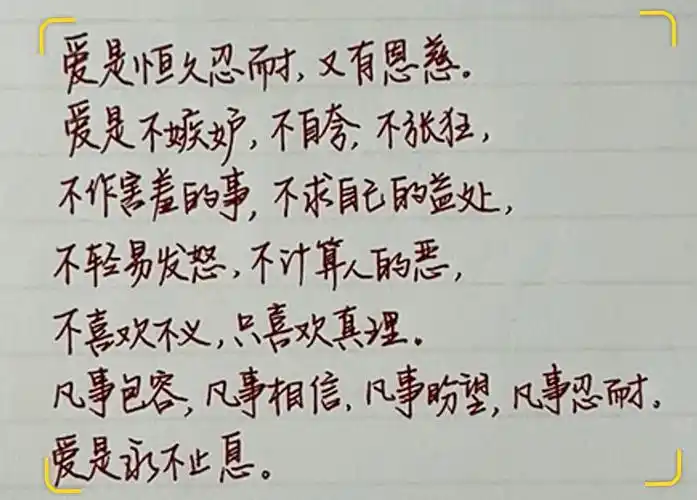 爱是恒久忍耐，又有恩慈。
爱是不嫉妒，不自夸，不张狂，
不作害羞的事，不求自己的益处，
不轻易发怒，不计算人的恶，
不喜欢不义，只喜欢真理。
凡事包容，凡事相信，凡事盼望，凡事忍耐。
爱是永不止息。